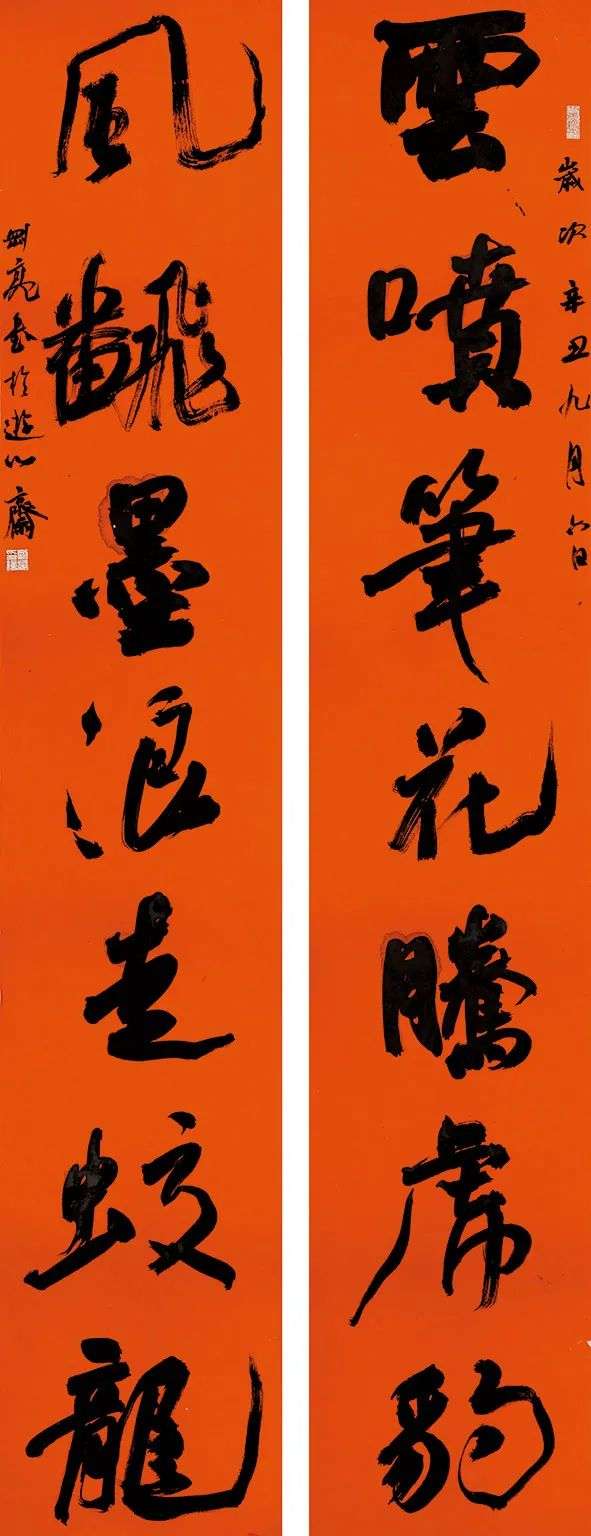 歲次辛丑九月六日
雲噴筆花騰虎豹
風翻墨浪走蛟龍
亮書於遊心齋